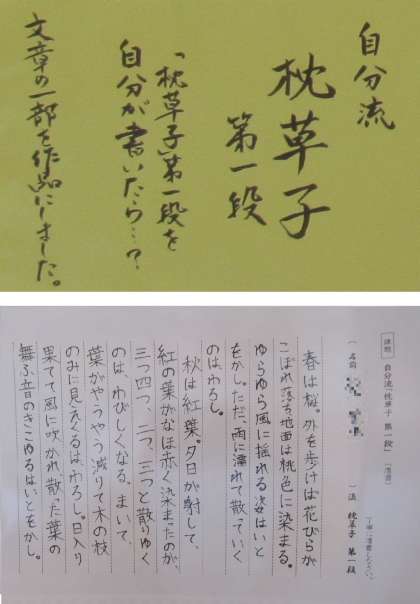 自分流
枕草子
第一段
「枕草子」第一段を
自分が書いたら…?
文章の一部を作品にしました。
課題 自分流「枕草子 第一段」(清書)
丁寧に清書しなさい。
( 名前 )流 枕草子 第一段
春は桜。外を歩けば花びらが
こぼれ落ち地面は桃色に染まる。
ゆらゆら風に揺れる姿はいと
をかし。ただ、雨に濡れて散っていく
のはわろし。
秋は紅葉。夕日が射して、
紅の葉がなほ赤く染まったのが、
三つ四つ、二つ、三つと散りゆく
のは、わびしくなる。まいて、
葉がやうやう減りて木の枝
のみに見えくるはわろし。日入り
果てて風に吹かれ散った葉の
舞ふ音のきこゆるはいとをかし。